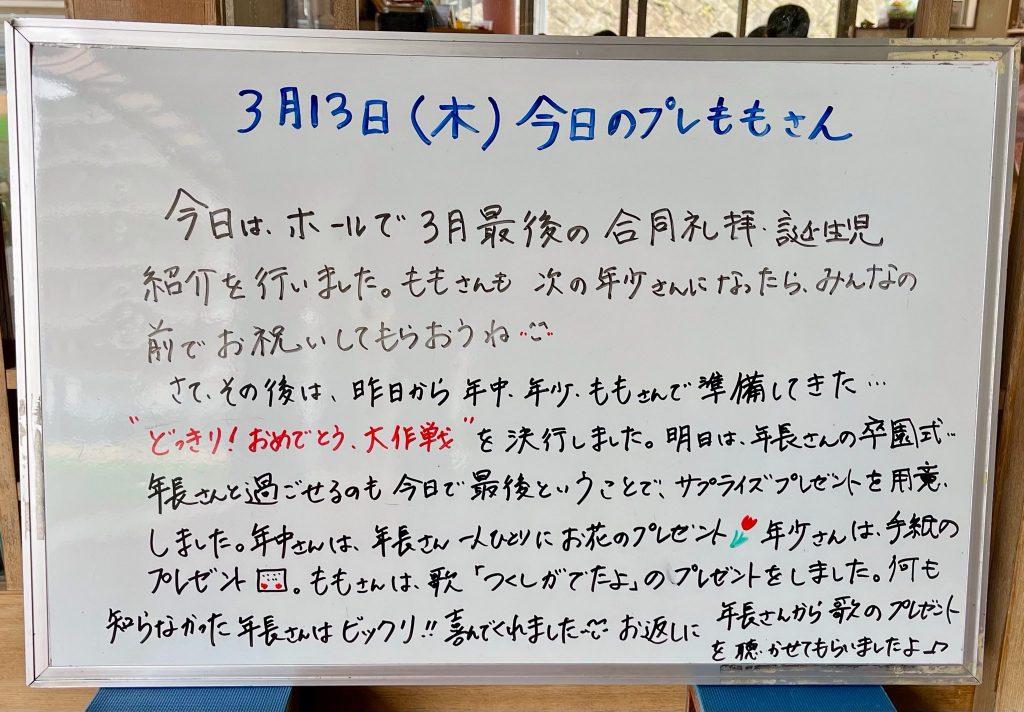 3月13日(木)今日のプレももさん
今日は、ホールで3月最後の合同礼拝・誕生児
紹介を行いました。ももさんも 次の年少さんになったら、みんなの
前でお祝いしてもらおうね
さて、その後は、昨日から年中、年少、ももさんで準備してきた…
"どっきり!おめでとう、大作戦"を決行しました。明日は、年長さんの卒園式…
年長さんと過ごせるのも今日で最後ということで、サプライズプレゼントを用意
しました。年中さんは、年長さん一人ひとりにお花のプレゼント 年少さんは、手紙の
プレゼント。ももさんは、歌「つくしがでたよ」のプレゼントをしました。何も
知らなかった年長さんはビックリ!!喜んでくれました お返しに 年長さんから歌のプレゼント
を聴かせてもらいましたよ♪